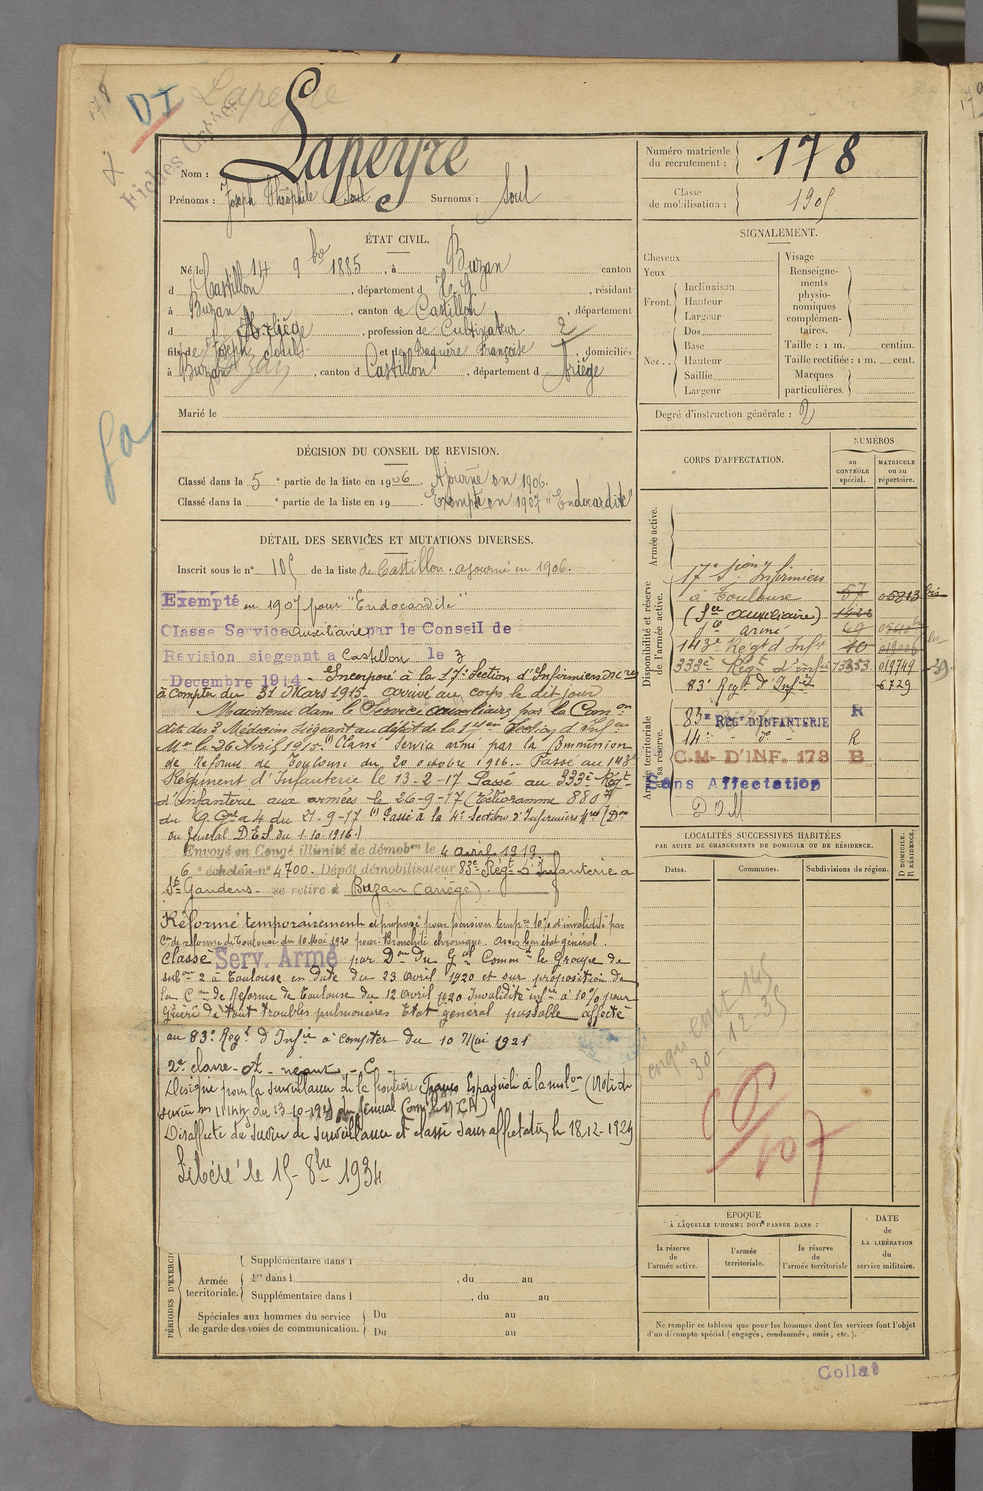 178
DI
Lapeyre
Fiches
Nom : Lapeyre
Prénoms : Joseph Théophile Surnoms : Soul
Numéro matricule
du recrutement : 178
Classe
de mobilisation : 1905
ÉTAT CIVIL.
Né le 14 9bre 1885, à Buzan canton
d Castillon, département d H. G., résidant
à Buzan, canton de Castillon, département
d Ariège, profession de Cultivateur 2
fils de Joseph et de Baquère Françoise, domiciliés
à Buzan, canton d Castillon, département d Ariège
Marié le
SIGNALEMENT.
Cheveux
Yeux
Front. Inclinaison
Hauteur
Largeur
Nez . . Dos
Base
Hauteur
Saillie
Largeur
Visage
Renseigne-
ments
physio-
nomiques
complémen-
taires.
Taille : 1 m. centim.
Taille rectifiée : 1 m. cent.
Marques
particulières.
Degré d'instruction générale : 2
DÉCISION DU CONSEIL DE REVISION.
Classé dans la 5 e partie de la liste en 1906. Ajourné en 1906.
Classé dans la e partie de la liste en 19 Exempté en 1907 "Endocardite"
DÉTAIL DES SERVICES ET MUTATIONS DIVERSES.
Inscrit sous le n° 105 de la liste de Castillon. ajourné en 1906.
Exempté en 1907 pour "Endocardite"
Classé Service Auxiliaire par le Conseil de
Révision siegeant a Castillon le 3
Decembre 1914 - Incorporé à la 17e Section d'Infirmiers Mres
à compter du 31 Mars 1915. arrivé au corps le dit jour
Maintenu dans le Service auxiliaire par la Comon
dite des 3 Médecins siégeant au dépôt de la 17eme Section d'Infers
Mres le 26 Avril 1915. (1) Classé Service armé par la Commission
de Réforme de Toulouse du 20 octobre 1916. - Passé au 143e
Régiment d'Infanterie le 13-2-17 Passé au 333e Régt
d'Infanterie aux armées le 26-9-17 (Téléramme 880
du G. Qer a 4 du 21-9-17 (1) Passé à la 4e Section d'Infirmiers Mres (Don
du Général D.E.S du 1.10.1916.)
Envoyé en Congé illimité de démobon le 4 avril 1919
6 e échelon n° 4700. Dépôt démobilisateur 83e Régt d'Infanterie a
St Gaudens. se retire à Buzan (Ariège).
Réformé temporairement et proposé pour pension tempre 10% d'invalidité par
Con de réforme de Toulouse du 10 Mai 1920 pour Bronchite chronique. Assez bon état général.
Classé Serv. Armé par Don du Gal Commt le Groupe de
subon 2 à Toulouse en date du 23 avril 1920 et sur proposition de
la Con de Reforme de Toulouse du 12 avril 1920 Invalidité infre à 10% pour
Guéri de tout troubles pulmonaires Etat general passable affecté
au 83e Regt d'Infie à compter du 10 Mai 1921
2e classe - A - néant - C -
Désigné pour la surveillance de la frontière Franco Espagnole à la mobon (Note de
Désaffecté du service de surveillance et classé sans affectation le 18.12.1929
Libéré le 15-8bre 1934
CORPS D'AFFECTATION.
NUMÉROS
DU
CONTRÔLE
spécial.
MATRICULE
ou au
répertoire.
Armée active.
Disponibilité et réserve
de l'armée active.
17e Sion Infirmiers
à Toulouse 57
(Sce auxiliaire)
Sce armé
143e Régt d'Infie
333e Régt d'Infie
83e Régt d'Infie 6729
Armée territoriale
et sa réserve.
83e REGt D'INFANTERIE R
14e - do - R
C.M. D'INF. 173 B
Sans Affectation
LOCALITÉS SUCCESSIVES HABITÉES
PAR SUITE DE CHANGEMENTS DE DOMICILE OU DE RÉSIDENCE.
Dates.
Communes.
Subdivisions de région.
D DOMICILE.
R RÉSIDENCE.
30-12-35
ÉPOQUE
À LAQUELLE L'HOMME DOIT PASSER DANS :
la réserve
de
l'armée active.
l'armée
territoriale.
la réserve
de
l'armée territoriale
DATE
de
LA LIBÉRATION
du
service militaire.
PÉRIODES D'EXERCI
Armée
territoriale.
Supplémentaire dans l
1re dans l , du au
Supplémentaire dans l , du au
Spéciales aux hommes du service
de garde des voies de communication.
Du au
Du au
Ne remplir ce tableau que pour les hommes dont les services font l'objet
d'un décompte spécial (engagés, condamnés, omis, etc.).
Collat